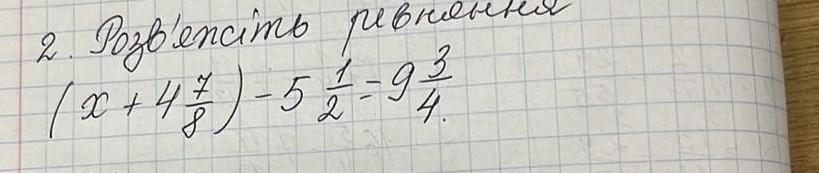 2. Розв'яжіть рівняння
(x + 4 7/8) - 5 1/2 = 9 3/4.